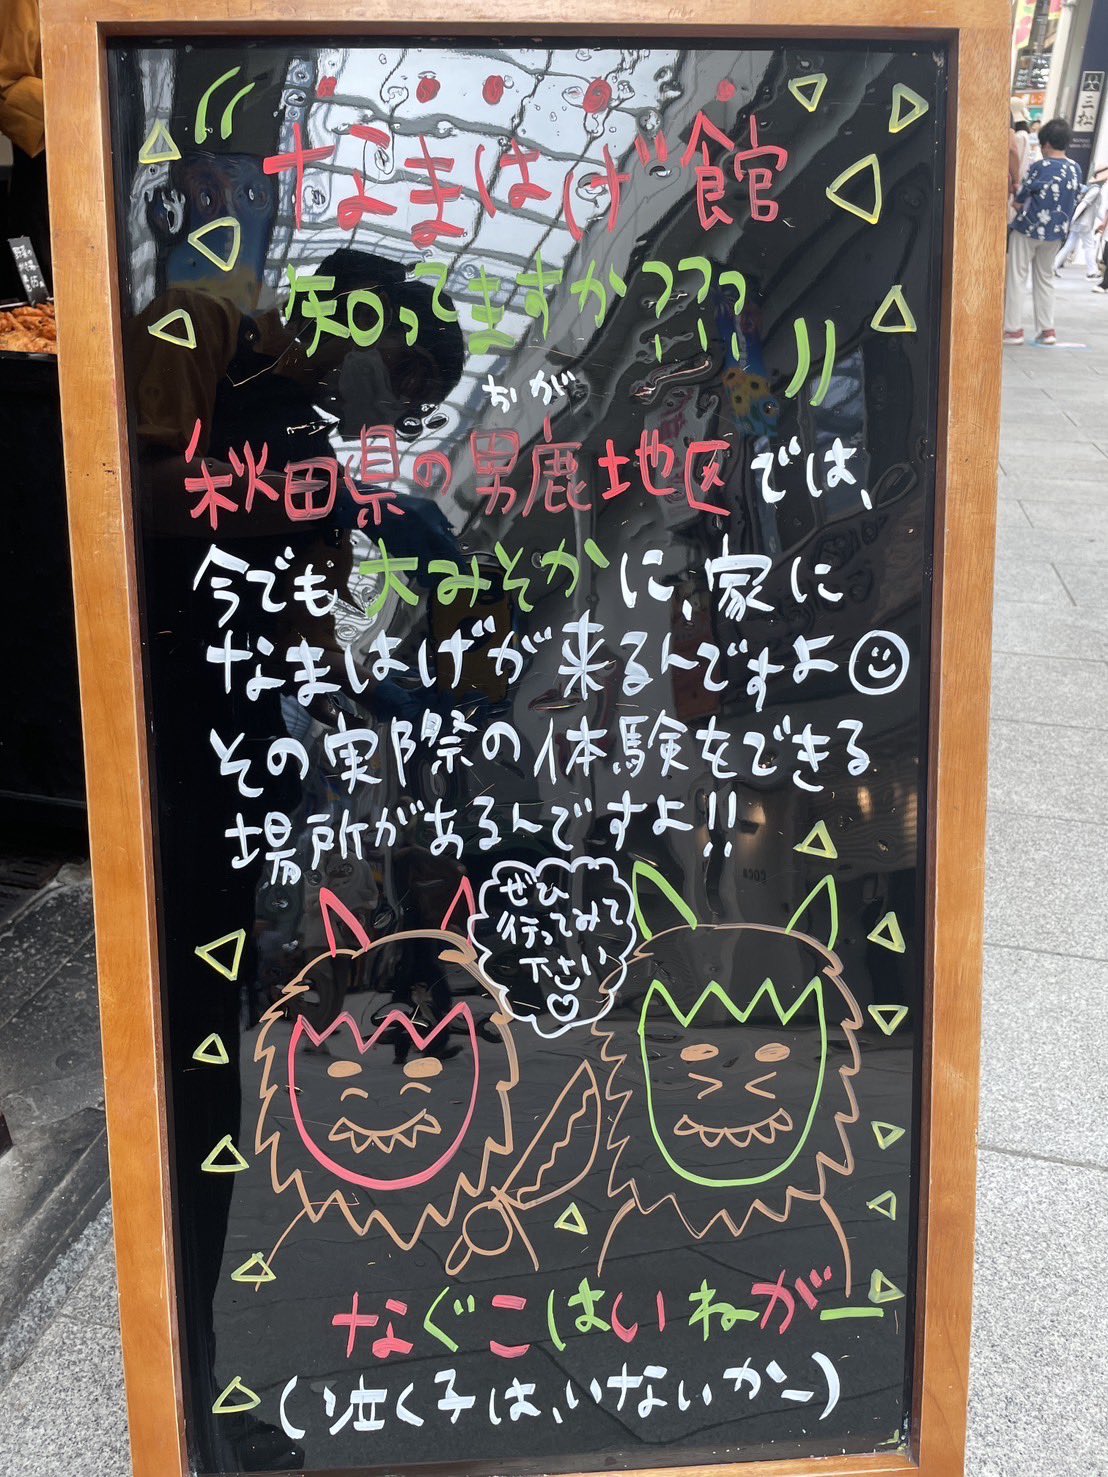 なまはげ館
知ってますか???
おが
秋田県の男鹿地区では、
今でも大みそかに、家に
なまはげが来るんですよ
その実際の体験をできる
場所があるんですよ!!
ぜひ
行ってみて
下さい♡
なぐこはいねがー
(泣く子は、いないかー)